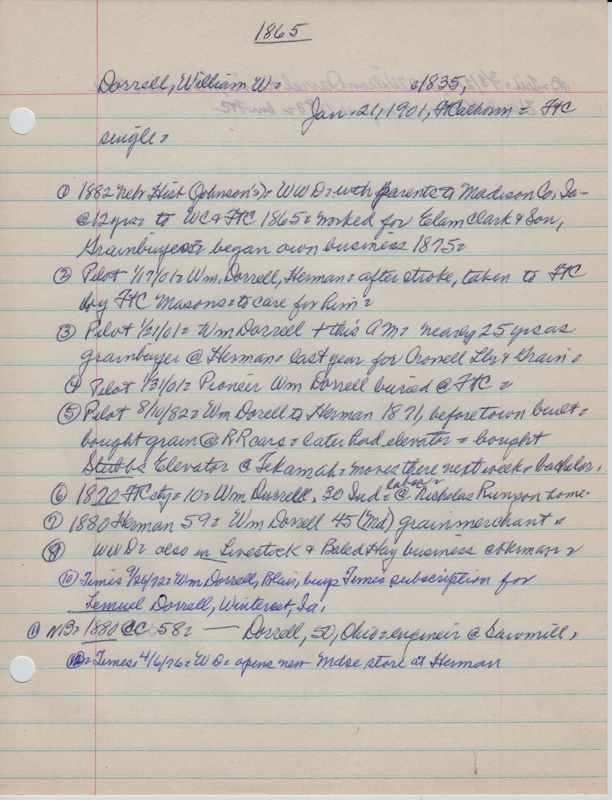 1865
Dorrell, William W= c1835,
Jan. 21, 1901, FtCalhoun = FtC
single=
① 1882 Nebr Hist (Johnson's)= WWD= with parents to Madison Co, Ia-
@12yrs= to WC & FtC 1865= worked for Elam Clark & Son,
Grainbuyers= began own business 1875=
② Pilot 1/17/01= Wm. Dorrell, Herman= after stroke, taken to FtC
by FtC Masons= to care for him=
③ Pilot 1/21/01= Wm Dorrell + this AM= nearly 25 yrs as
grainbuyer @ Herman= last year for Crowell Lbr & Grain=
④ Pilot 1/31/01= Pioneer Wm Dorrell buried @ FtC=
⑤ Pilot 8/10/82= Wm Dorell to Herman 1871, before town built=
bought grain @ RR cars= later had elevator = bought
Stubbs Elevator @ Tekamah= moves there next week= bachelor,
⑥ 1870 FtCsty= 10= Wm Durrell, 30 Ind= labor= @ Nicholas Runyon home.
⑦ 1880 Herman 59= Wm Dorrell 45 (Md) grain merchant=
⑨ WWD= also in Livestock & Baled Hay business @ Herman=
⑩ Times 9/26/72= Wm Dorrell, Blair, buys Times subscription for
Lemuel Dorrell, Winterset, Ia,
⑪ NB= 1880 CC 58= — Dorrell, 50, Ohio= engineir @ Sawmill,
⑫= Times= 4/6/76= WD= opens new Mdse store at Herman